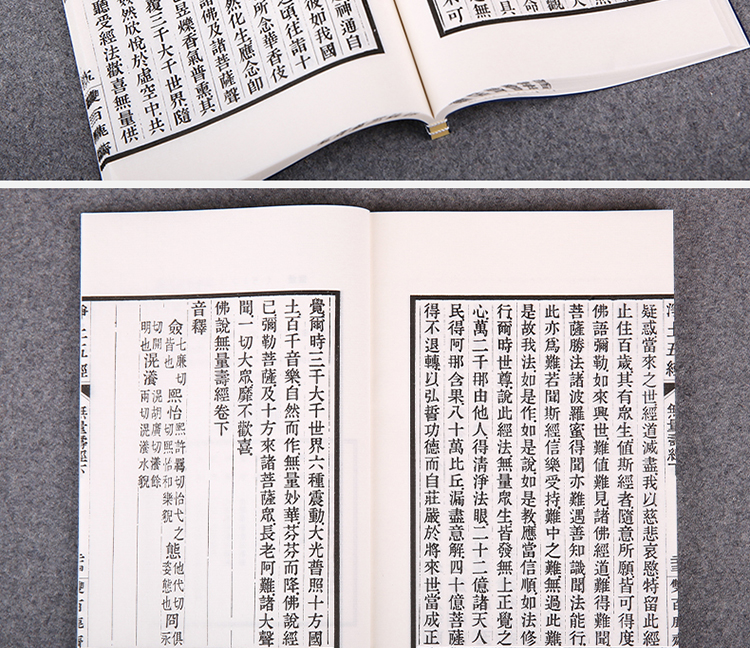 不可
神通自
後如我國
之頃往詣十
所念華香伎
然化生應念即
諸佛及諸菩薩聲
昱爍香氣普熏其
覆三千大千世界隨
然欣悅於虛空中共
聽受經法歡喜無量供
百鹿齋
五經
無量壽經下
雙百鹿齋
疑惑當來之世經道滅盡我以慈悲哀愍特留此經
止住百歲其有眾生值斯經者隨意所願皆可得度
佛語彌勒如來興世難值難見諸佛經道難得難聞
菩薩勝法諸波羅蜜得聞亦難遇善知識聞法能行
此亦為難若聞斯經信樂受持難中之難無過此難
是故我法如是作如是說如是教應當信順如法修
行爾時世尊說此經法無量眾生皆發無上正覺之
心萬二千那由他人得清淨法眼二十二億諸天人
民得阿那含果八十萬比丘漏盡意解四十億菩薩
得不退轉以弘誓功德而自莊嚴於將來世當成正
覺爾時三千大千世界六種震動大光普照十方國
土百千音樂自然而作無量妙華芬芬而降佛說經
已彌勒菩薩及十方來諸菩薩眾長老阿難諸大聲
聞一切大眾靡不歡喜
佛說無量壽經卷下
音釋
僉七廉切皆也 熙怡熙許羈切怡弋之切熙怡和樂貌 態他代切姿態也 冏俱永
切開明也 滉瀁滉胡廣切瀁餘兩切滉瀁水貌
五經
無量壽經下
雙百鹿齋